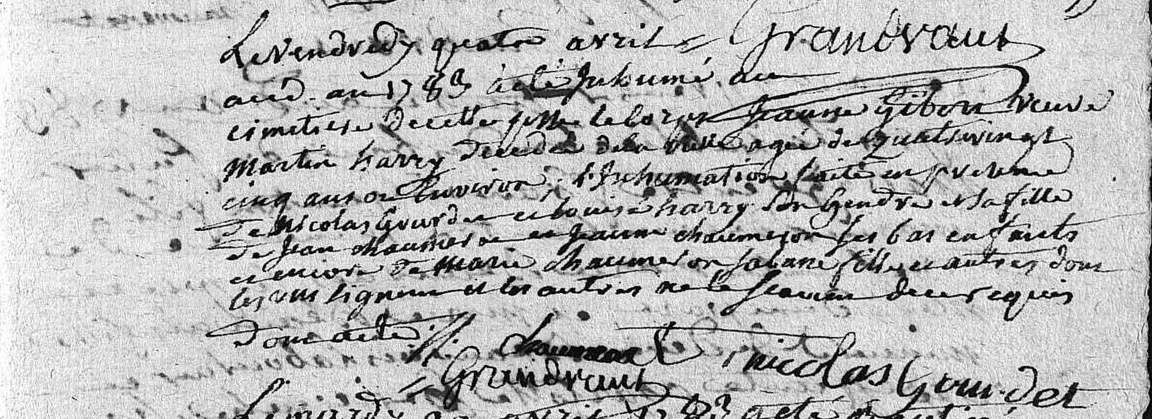 Le vendredy quatre avril = Grandvaut
aud. an 1783 à eté Inhumé au
cimetiere de cette ditte le corps Jeanne Gibon veuve
Martin harry decedée de la veille agée de quatrevingt
cinq ans ou Environ, l'Inhumation faite en presence
de Nicolas Gourdet et Louise harry Son Gendre et sa fille
de Jean chaumeron et Jeanne chaumeron ses enfants
et encore de Marie chaumeron fille et autres dont
les uns signent et les autres ne le scavent de ce requis
Dont acte
chaumeron nicolas Gourdet
= Grandvaut
Le mardy avril 1783 à eté